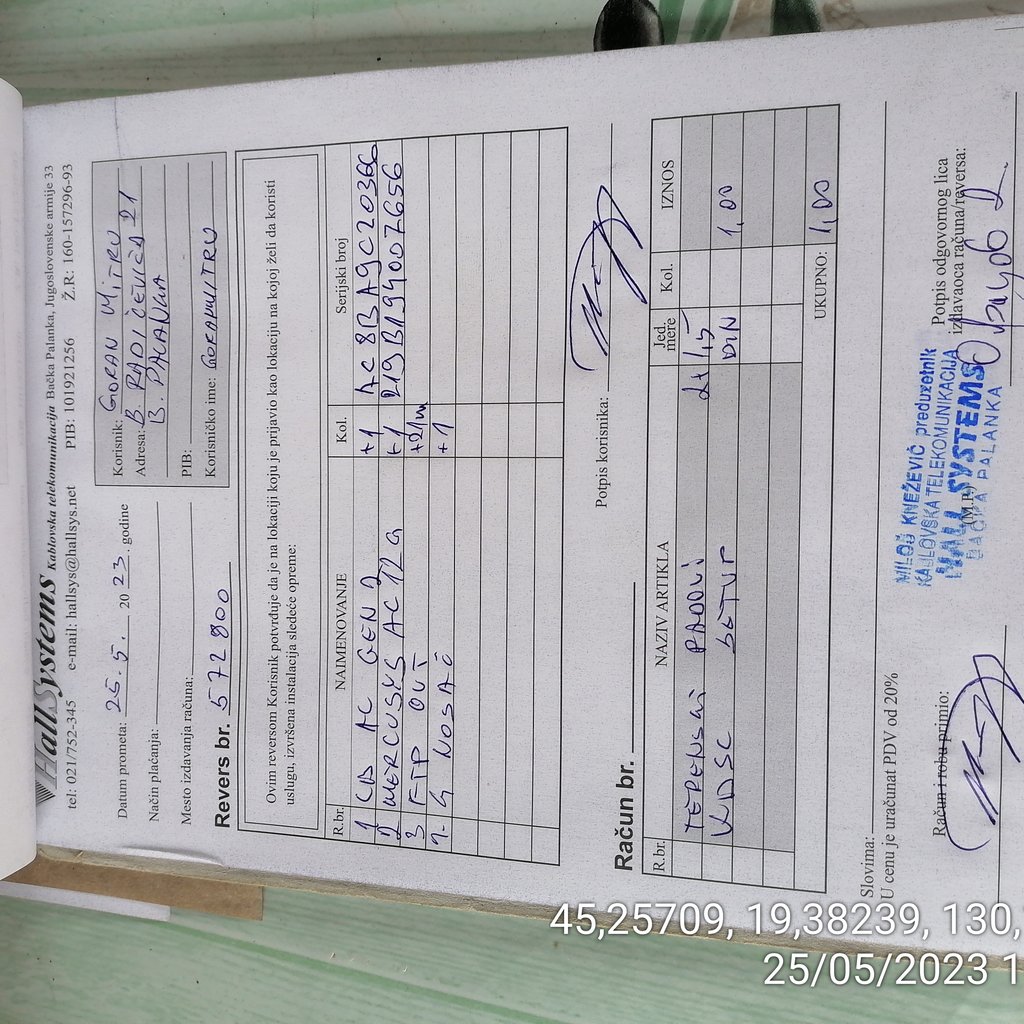 HallSystems Kablovska telekomunikacija Bačka Palanka, Jugoslovenske armije 33
tel: 021/752-345 e-mail: hallsys@hallsys.net PIB: 101921256 Ž.R: 160-157296-93
Datum prometa: 25. 5. 2023. godine
Način plaćanja:
Mesto izdavanja računa:
Revers br. 572800
Korisnik: GORAN MITRU
Adresa: B. RADIČEVIĆA 21
B. PALANKA
PIB:
Korisničko ime: GORANMITRU
Ovim reversom Korisnik potvrđuje da je na lokaciji koju je prijavio kao lokaciju na kojoj želi da koristi
uslugu, izvršena instalacija sledeće opreme:
R.br. NAIMENOVANJE Kol. Serijski broj
1 AC GEN 2 +1 AC8BA9C20366
2 MERCUSYS AC12G +1 219B194007656
3 FTP OUT +21m
G NOSAČ +1
Potpis korisnika:
Račun br.
R.br. NAZIV ARTIKLA Jed mere Kol. IZNOS
TERENSKI RADOVI
SETUP DIN 1,00
UKUPNO: 1,00
Slovima:
U cenu je uračunat PDV od 20%
Račun i robu primio:
(M.P.)
Potpis odgovornog lica
izdavaoca računa/reversa:
MILOŠ KNEŽEVIĆ preduzetnik
KABLOVSKA TELEKOMUNIKACIJA
HALL SYSTEMS
BAČKA PALANKA
45,25709, 19,38239, 130,
25/05/2023 1